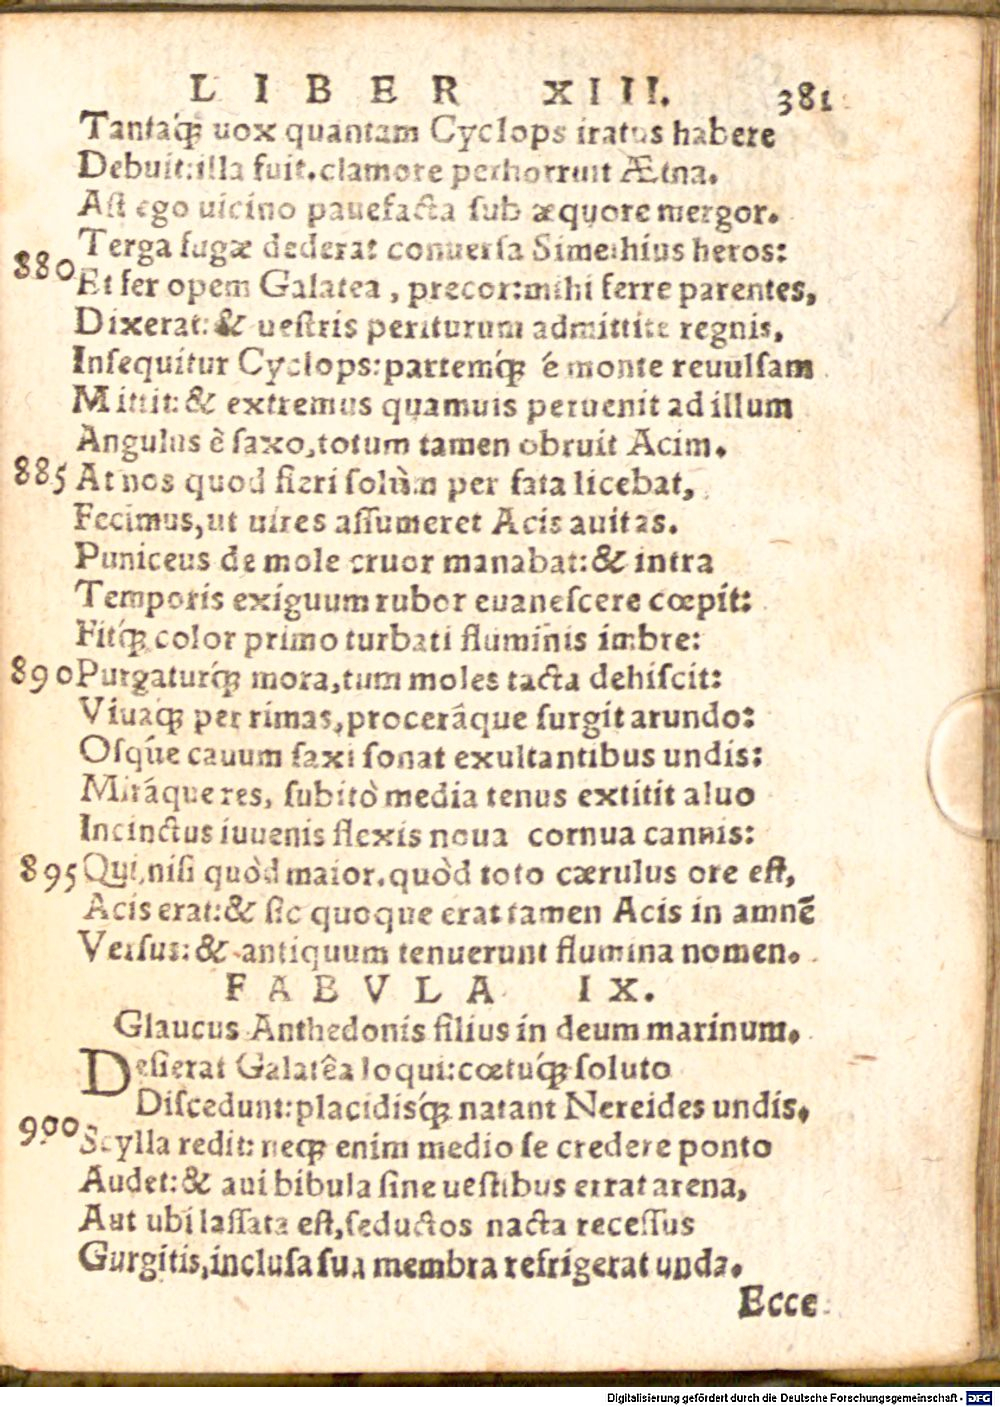 LIBER XIII. 381
Tantaq́; uox quantam Cyclops iratus habere
Debuit: illa fuit. clamore perhorruit Ætna.
Ast ego uicino pauefacta sub æquore mergor.
Terga fugæ dederat conuersa Simethius heros:
880 Et fer opem Galatea, precor: mihi ferre parentes,
Dixerat: & uestris periturum admittite regnis,
Insequitur Cyclops: partemq́; é monte reuulsam
Mittit: & extremus quamuis peruenit ad illum
Angulus è saxo, totum tamen obruit Acim.
885 At nos quod fieri solùm per fata licebat,
Fecimus, ut uires assumeret Acis auitas.
Puniceus de mole cruor manabat: & intra
Temporis exiguum rubor euanescere cœpit:
Fitq́; color primo turbati fluminis imbre:
890 Purgaturq́; mora, tum moles tacta dehiscit:
Viuaq́; per rimas, proceráque surgit arundo:
Osq́ue cauum saxi sonat exultantibus undis:
Miráque res, subitò media tenus extitit aluo
Incinctus iuuenis flexis noua cornua cannis:
895 Qui, nisi quòd maior, quòd toto cærulus ore est,
Acis erat: & sic quoque erat tamen Acis in amnẽ
Versus: & antiquum tenuerunt flumina nomen.
FABVLA IX.
Glaucus Anthedonis filius in deum marinum.
Desierat Galatêa loqui: cœtuq́; soluto
Discedunt: placidisq́; natant Nereides undis,
900 Scylla redit: neq; enim medio se credere ponto
Audet: & aui bibula sine uestibus errat arena,
Aut ubi lassata est, seductos nacta recessus
Gurgitis, inclusa sua membra refrigerat unda.
Ecce
Digitalisierung gefördert durch die Deutsche Forschungsgemeinschaft - DFG